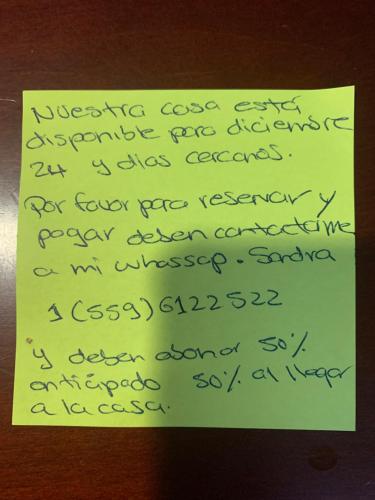 Nuestra casa está
disponible para diciembre
24 y días cercanos.
Por favor para reservar y
pagar deben contactarme
a mi whassap. Sandra
1(559)6122522
y deben abonar 50%
anticipado 50% al llegar
a la casa.